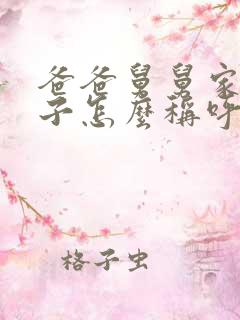 爸爸舅舅家
子怎麽稱呼
格子虫